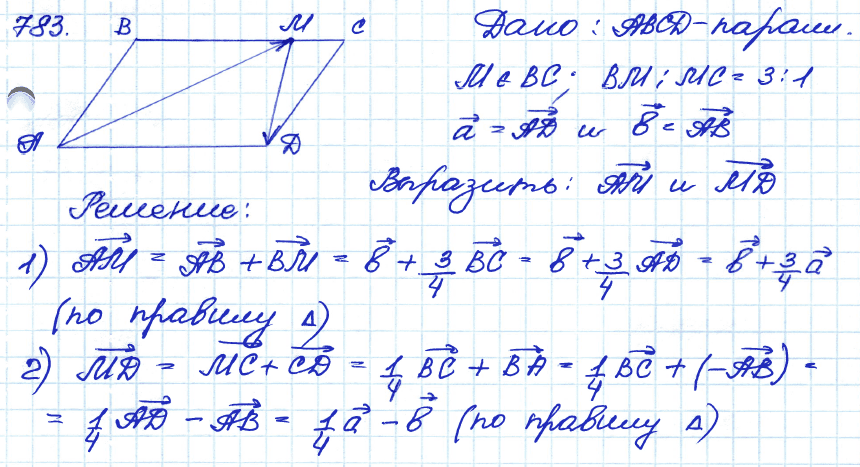 783. B M C Дано: ABCD - парал.
M ∈ BC; BM : MC = 3 : 1
a⃗ = AD⃗ и b⃗ = AB⃗
A D
Выразить: AM⃗ и MD⃗
Решение:
1) AM⃗ = AB⃗ + BM⃗ = b⃗ + 3/4 BC⃗ = b⃗ + 3/4 AD⃗ = b⃗ + 3/4 a⃗
(по правилу Δ)
2) MD⃗ = MC⃗ + CD⃗ = 1/4 BC⃗ + BA⃗ = 1/4 BC⃗ + (-AB⃗) =
= 1/4 AD⃗ - AB⃗ = 1/4 a⃗ - b⃗ (по правилу Δ)